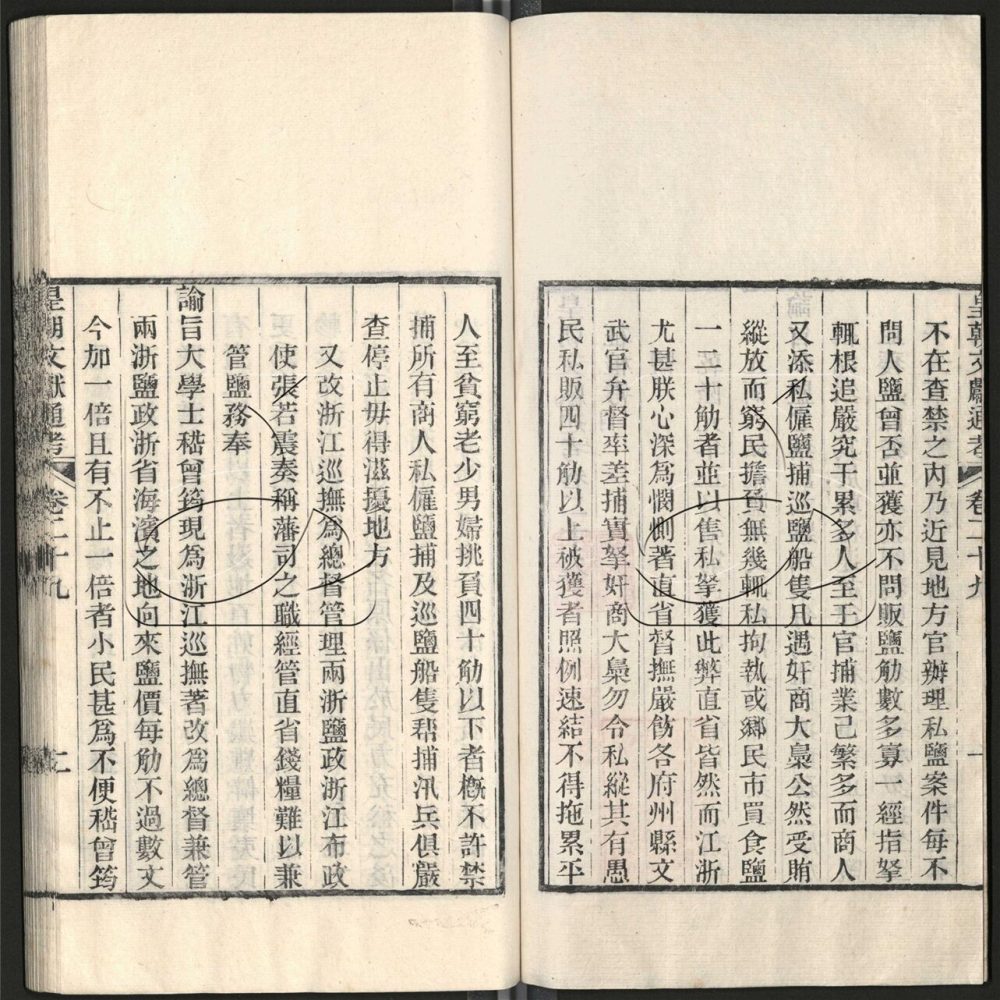 皇朝文獻通考 卷二十九
不在查禁之內乃近見地方官辦理私鹽案件每不
問人鹽曾否並獲亦不問販鹽觔數多寡一經指拏
輒根追嚴究干累多人至于官捕業已繁多而商人
又添私僱鹽捕巡鹽船隻凡遇奸商大梟公然受賄
縱放而窮民擔負無幾輒私拘執或鄉民市買食鹽
一二十觔者並以售私拏獲此弊直省皆然而江浙
尤甚朕心深為憫惻著直省督撫嚴飭各府州縣文
武官弁督率差捕實拏奸商大梟勿令私縱其有愚
民私販四十觔以上被獲者照例速結不得拖累平
人至貧窮老少男婦挑負四十觔以下者概不許禁
捕所有商人私僱鹽捕及巡鹽船隻幇捕汛兵俱嚴
查停止毋得滋擾地方
又改浙江巡撫為總督管理兩浙鹽政浙江布政
使張若震奏稱藩司之職經管直省錢糧難以兼
管鹽務奉
諭旨大學士嵇曾筠現為浙江巡撫著改為總督兼管
兩浙鹽政浙省海濱之地向來鹽價每觔不過數文
今加一倍且有不止一倍者小民甚為不便嵇曾筠
皇朝文獻通考 卷二十九